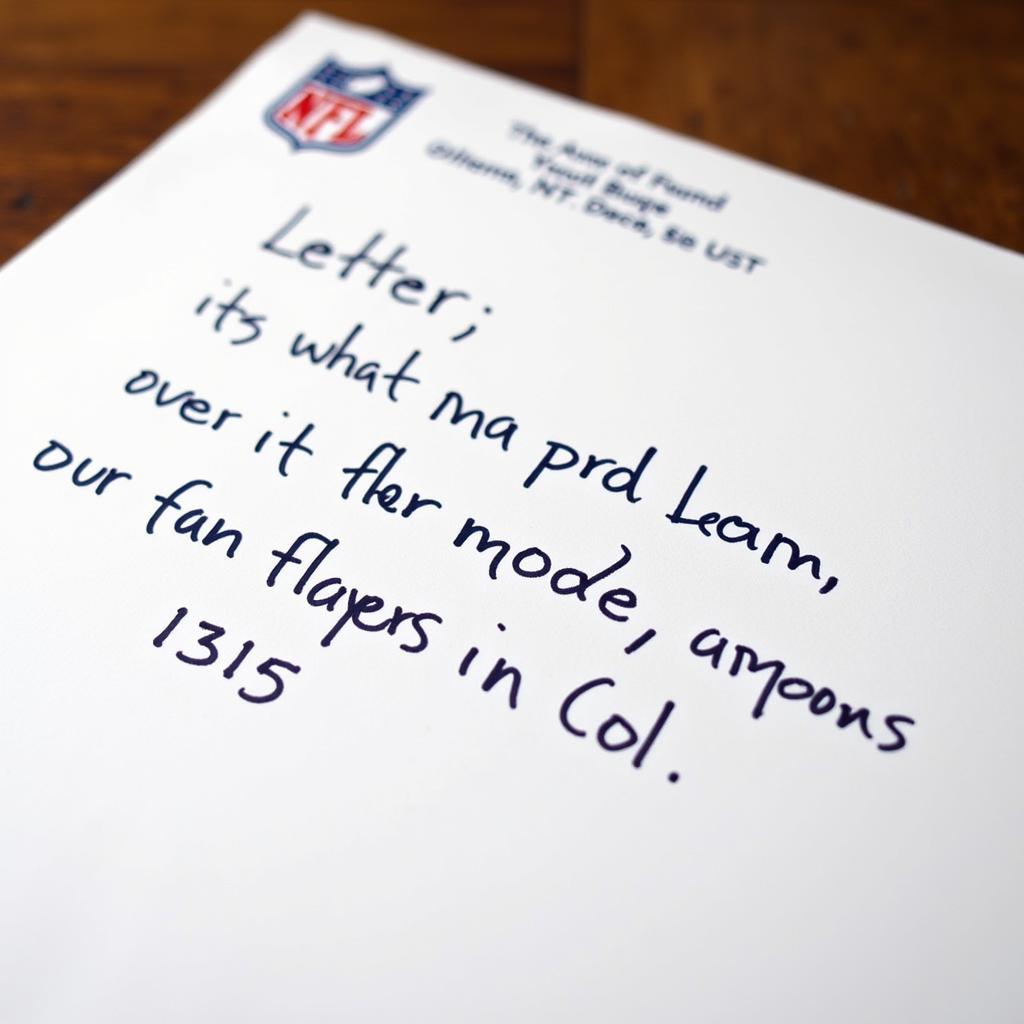 NFL
The Ame of Found
Youll Buge
Olhema, NT. Dack, So UST
Letter;
its what ma prd Leam,
over it fler mode, amyoons
our fan flayers in Col.
1315